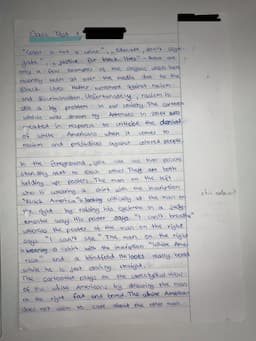 Class Test 1
"Color is not a crime", "Educate, don't
"justice for black lives" - these are
only a few examples of the slogans which have
recently been all over the media due to the
Black Lives Matter movement against racism
and discrimination. Unfortunately, racism is
still a big problem in our society. The cartoon
which was drawn by in 2014 was
created in response to criticize the
of white Americans when it comes to
racism and prejudices against colored people.
In the foreground, you can see two people
standing next to each other. They are both
holding up posters. The man on the left
who is wearing a shirt with the inscription
"Black America" is looking critically at the man on
the right by raising his eyebrow in a
way. His poster says "I can't breathe"
whereas the poster of the man on the right
says "I can't see". The man on the right
is wearing a shirt with the inscription "White Ame-
rica" and a blindfold. He looks really
while he is just standing straight.
The cartoonist plays on the view
of the white Americans by drawing the man
on the right fat and The white American
does not seem to care about the other man